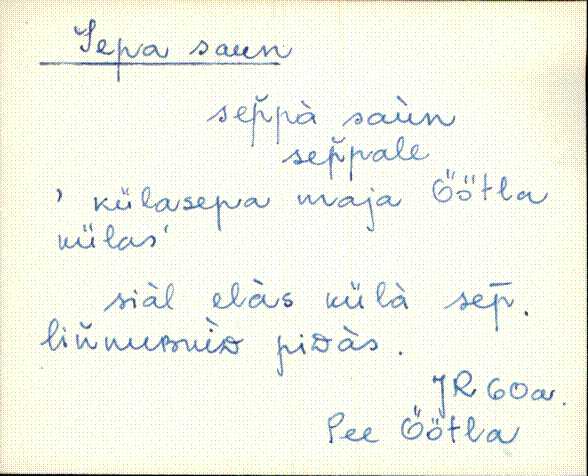 Sepa saun
sep̆pà saùn
sep̆pale
’ külasepa maja Öötla
külas‘
siàl elàs külà sep̄.
pidàs.
JR 60a.
Pee Öötla